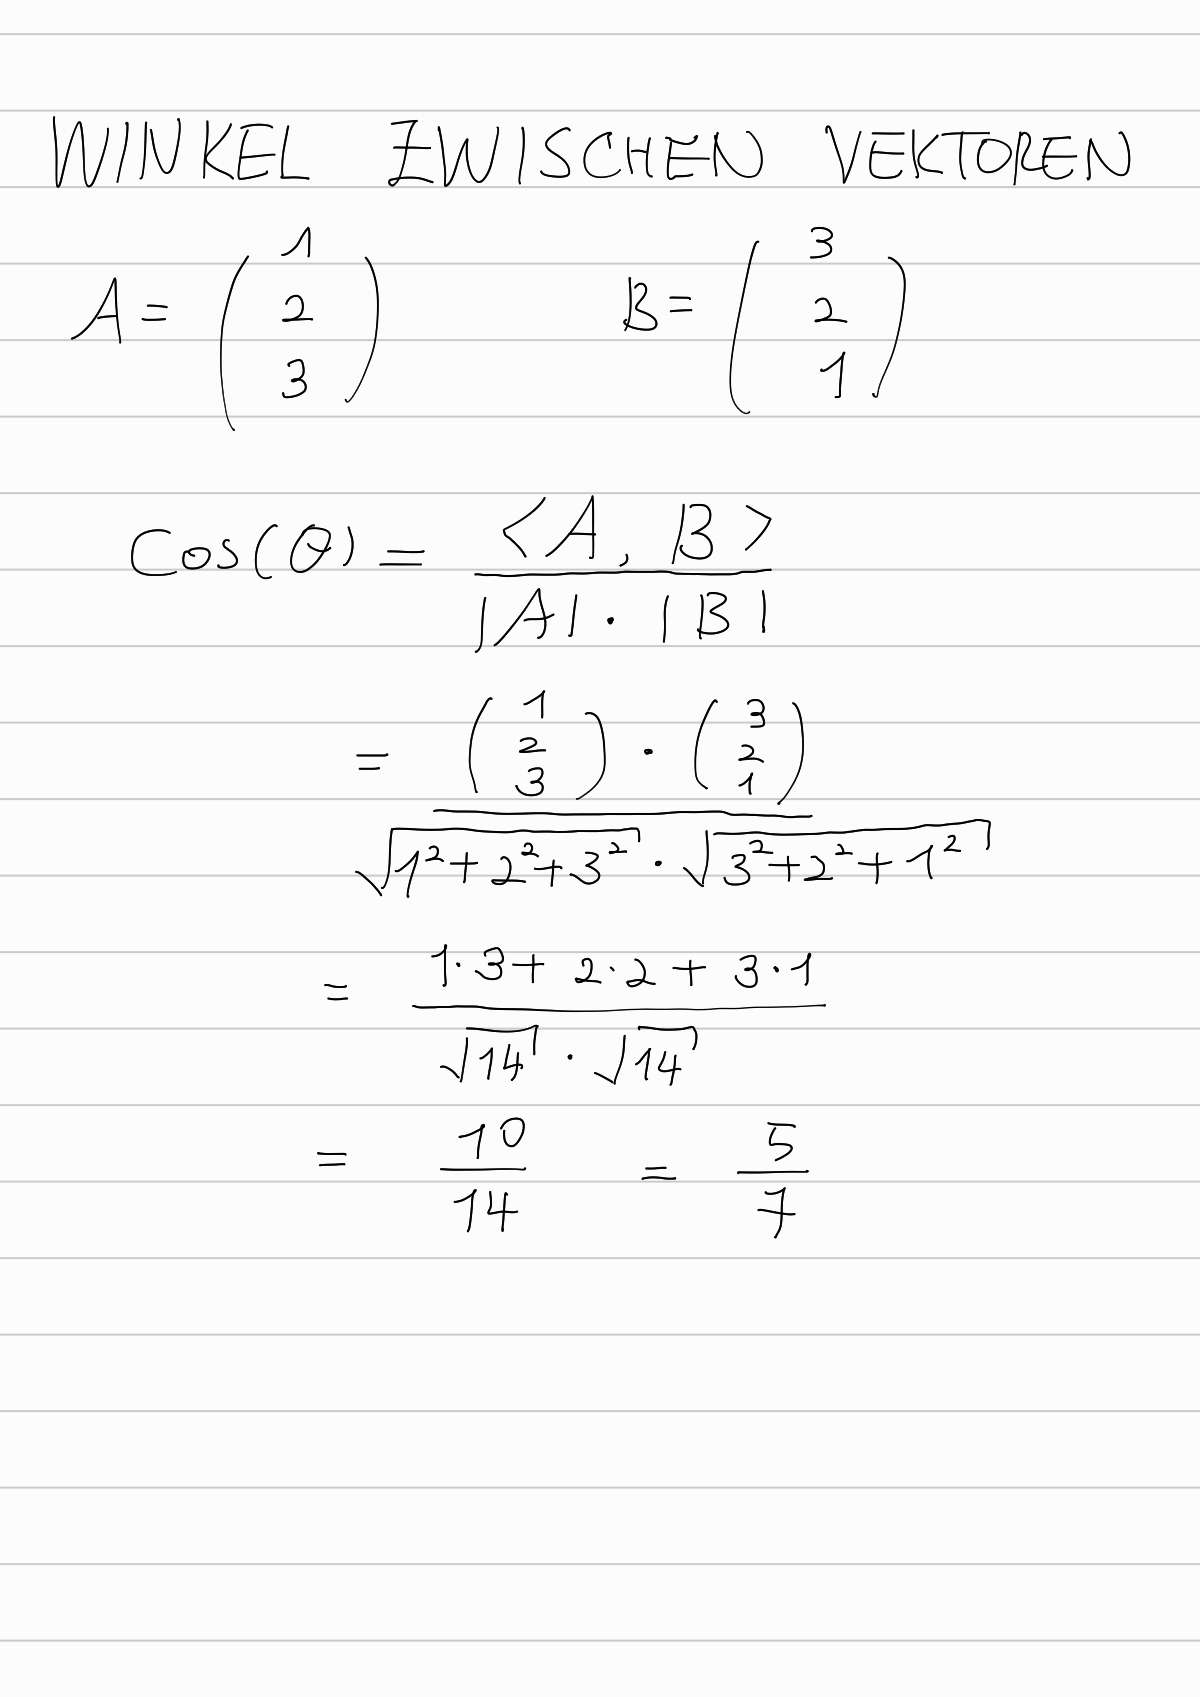 WINKEL ZWISCHEN VEKTOREN
A = ( 1 2 3 ) B = ( 3 2 1 )
Cos(θ) = <A, B> / |A| · |B|
= ( 1 2 3 ) · ( 3 2 1 ) / √(1² + 2² + 3²) · √(3² + 2² + 1²)
= 1·3 + 2·2 + 3·1 / √14 · √14
= 10 / 14 = 5 / 7